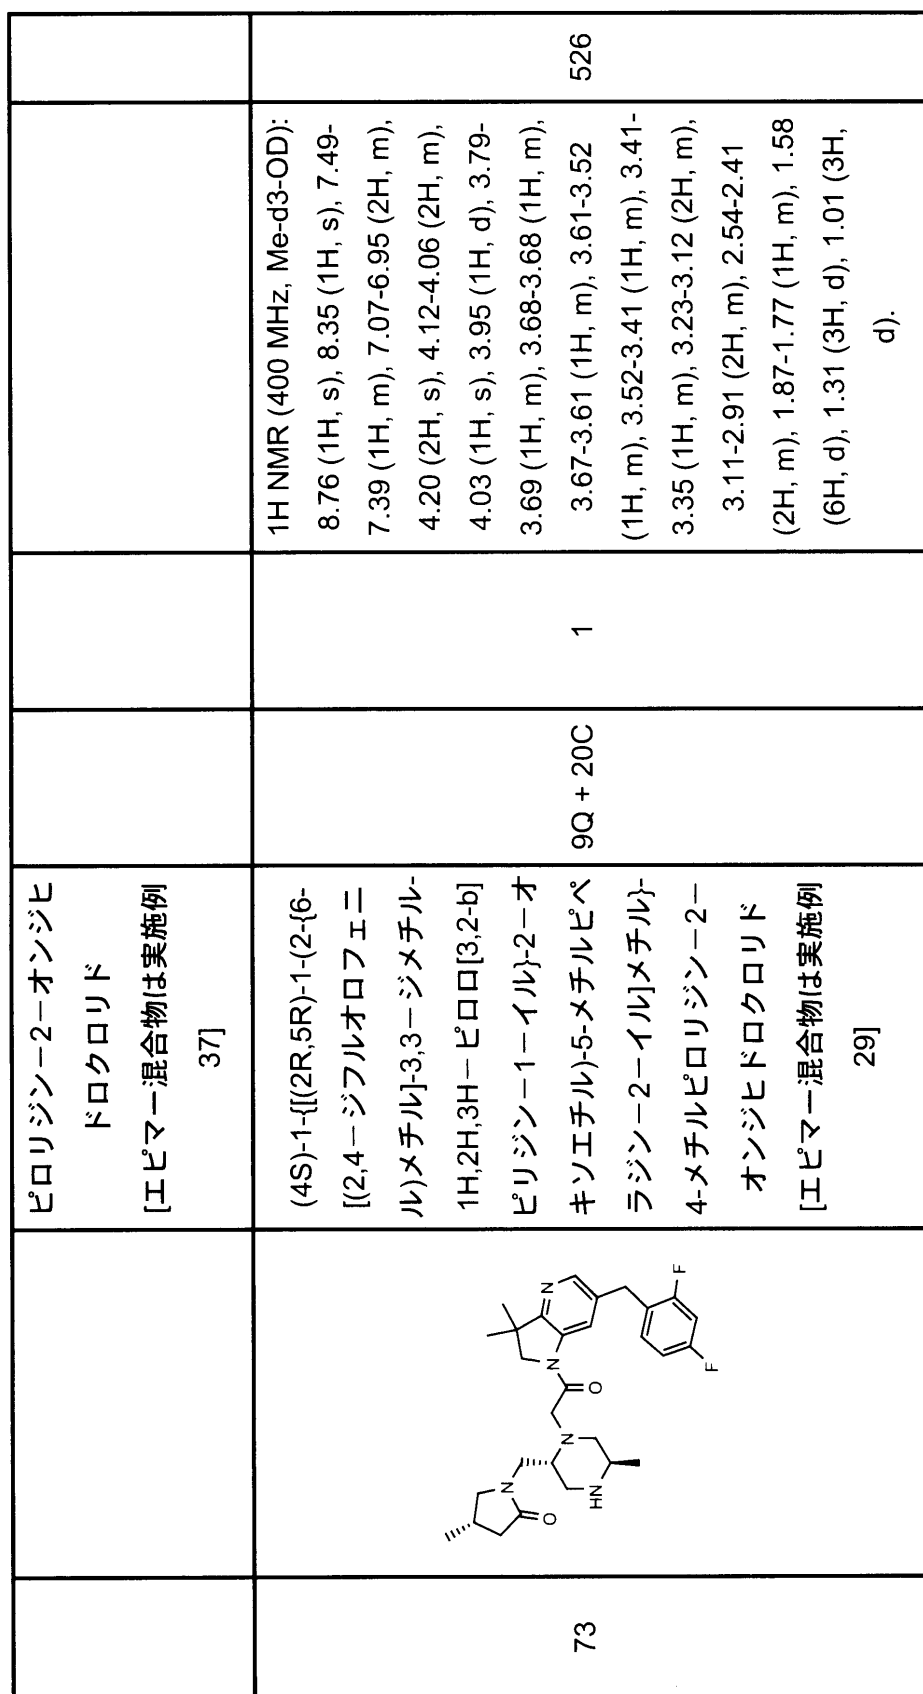 ピロリジン－2－オンジヒ
ドロクロリド
[エピマー混合物は実施例
37]
73
N
F
F
N
O
N
HN
N
O
(4S)-1-{[(2R,5R)-1-(2-{6-
[(2,4－ジフルオロフェニ
ル)メチル]-3,3－ジメチル-
1H,2H,3H－ピロロ[3,2-b]
ピリジン－1－イル}-2－オ
キソエチル)-5-メチルピペ
ラジン－2－イル]メチル}-
4-メチルピロリジン－2－
オンジヒドロクロリド
[エピマー混合物は実施例
29]
9Q + 20C
1
1H NMR (400 MHz, Me-d3-OD):
8.76 (1H, s), 8.35 (1H, s), 7.49-
7.39 (1H, m), 7.07-6.95 (2H, m),
4.20 (2H, s), 4.12-4.06 (2H, m),
4.03 (1H, s), 3.95 (1H, d), 3.79-
3.69 (1H, m), 3.68-3.68 (1H, m),
3.67-3.61 (1H, m), 3.61-3.52
(1H, m), 3.52-3.41 (1H, m), 3.41-
3.35 (1H, m), 3.23-3.12 (2H, m),
3.11-2.91 (2H, m), 2.54-2.41
(2H, m), 1.87-1.77 (1H, m), 1.58
(6H, d), 1.31 (3H, d), 1.01 (3H,
d).
526